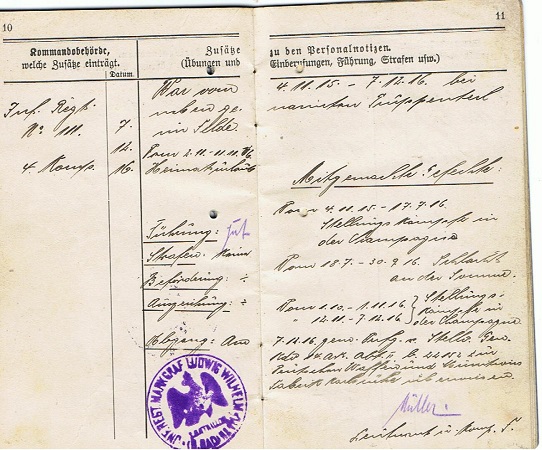 10
Kommandobehörde,
welche Zusätze einträgt.
Datum.
Zusätze
(Übungen und
Inf. Regt.
No 111.
4. Komp.
7.
12.
16.
War vom
im Felde.
Vom 2.11.-11.11.16.
Heimaturlaub
Führung: gut
Strafen: keine
Beförderung: ÷
Auszeichnung: ÷
Abgang: Am
INF. REGT. MARKGRAF LUDWIG WILHELM
11
zu den Personalnotizen.
Einberufungen, Führung, Strafen usw.)
4.11.15. - 7.12.16. bei
Truppenteil
Mitgemachte Gefechte:
Vom 4.11.15. - 17.7.16.
Stellungskämpfe in
der Champagne
Vom 18.7. - 30.9.16. Schlacht
an der Somme.
Vom 1.10. - 1.11.16. } Stellungs-
" 12.11. - 7.12.16 kämpfe in
der Champagne
7.12.16 gem. Verf. v. Stellv. Gen.
Kdo
Deutschen Waffen und Munitions
überwiesen.
Müller.
Leutnant u. Komp. F.